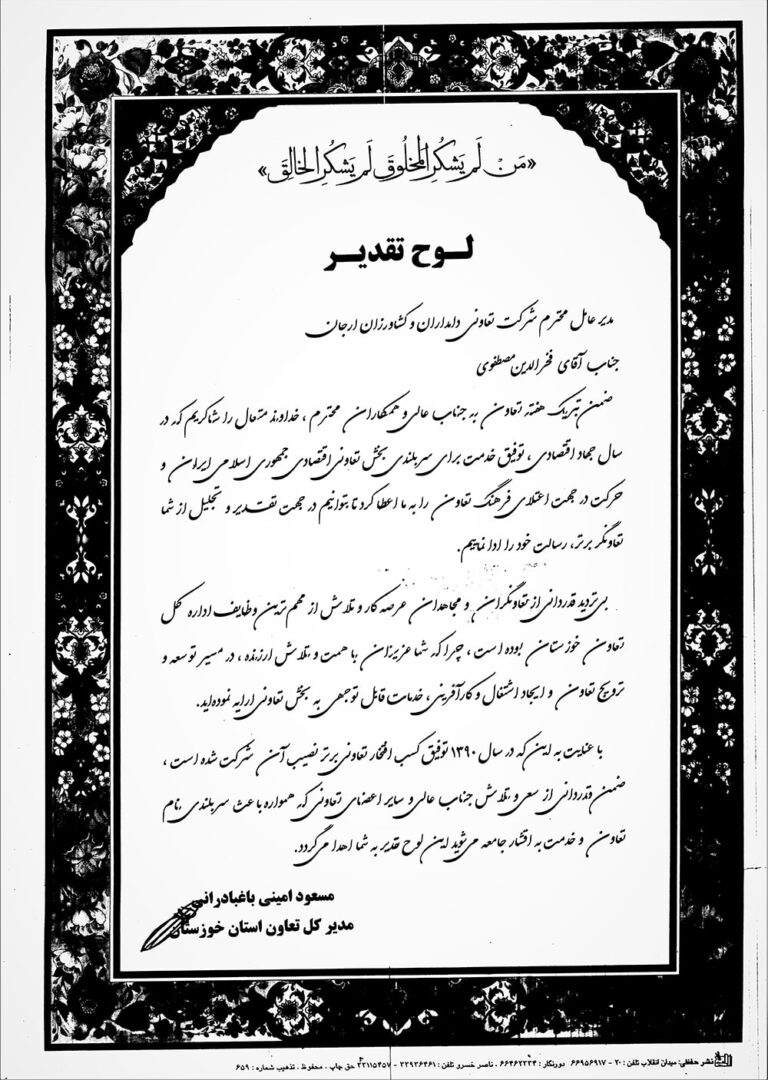 «مَنْ لَم یَشکُرِ المَخلُوقَ لَم یَشکُرِ الخالِقَ»
لـوح تقدیـر
مدیر عامل محترم شرکت تعاونی دامداران و کشاورزان ارجان
جناب آقای فخرالدین مصطفوی
ضمن تبریک هفته تعاون به جناب عالی و همکاران محترم ، خداوند متعال را شاکریم که در
سال جهاد اقتصادی ، توفیق خدمت برای سربلندی بخش تعاونی اقتصادی جمهوری اسلامی ایران و
حرکت در جهت اعتلای فرهنگ تعاون را به ما اعطا کرد تا بتوانیم در جهت تقدیر و تجلیل از شما
تعاونگر برتر، رسالت خود را ادا نماییم.
بی‌تردید قدردانی از تعاونگران و مجاهدان عرصه کار و تلاش از مهم‌ترین وظایف اداره کل
تعاون خوزستان بوده است ، چرا که شما عزیزان با همت و تلاش ارزنده ، در مسیر توسعه و
ترویج تعاون و ایجاد اشتغال و کارآفرینی ، خدمات قابل توجهی به بخش تعاونی ارایه نموده‌اید.
با عنایت به این که در سال ۱۳۹۰ توفیق کسب افتخار تعاونی برتر نصیب آن شرکت شده است ،
ضمن قدردانی از سعی و تلاش جناب عالی و سایر اعضای تعاونی که همواره باعث سربلندی نام
تعاون و خدمت به اقشار جامعه می‌شوید این لوح تقدیر به شما اهدا می‌گردد.
مسعود امینی باغبادرانی
مدیر کل تعاون استان خوزستان
نشر حفظی: میدان انقلاب تلفن : ۲۰ - ۶۶۹۵۶۹۱۷ دورنگار : ۶۶۴۶۲۲۳۴ . ناصر خسرو تلفن : ۳۳۹۳۶۴۶۱ - ۳۳۱۱۵۴۵۷ حق چاپ ، محفوظ . تذهیب شماره : ۶۵۹